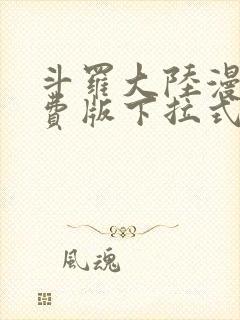 斗羅大陸漫
費版下拉式
風魂